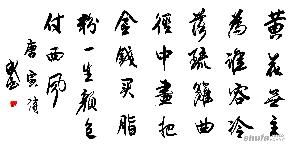 黄花无主
为谁容冷
落疏篱曲
径中尽把
金钱买脂
粉一生颜色
付西风
唐寅诗